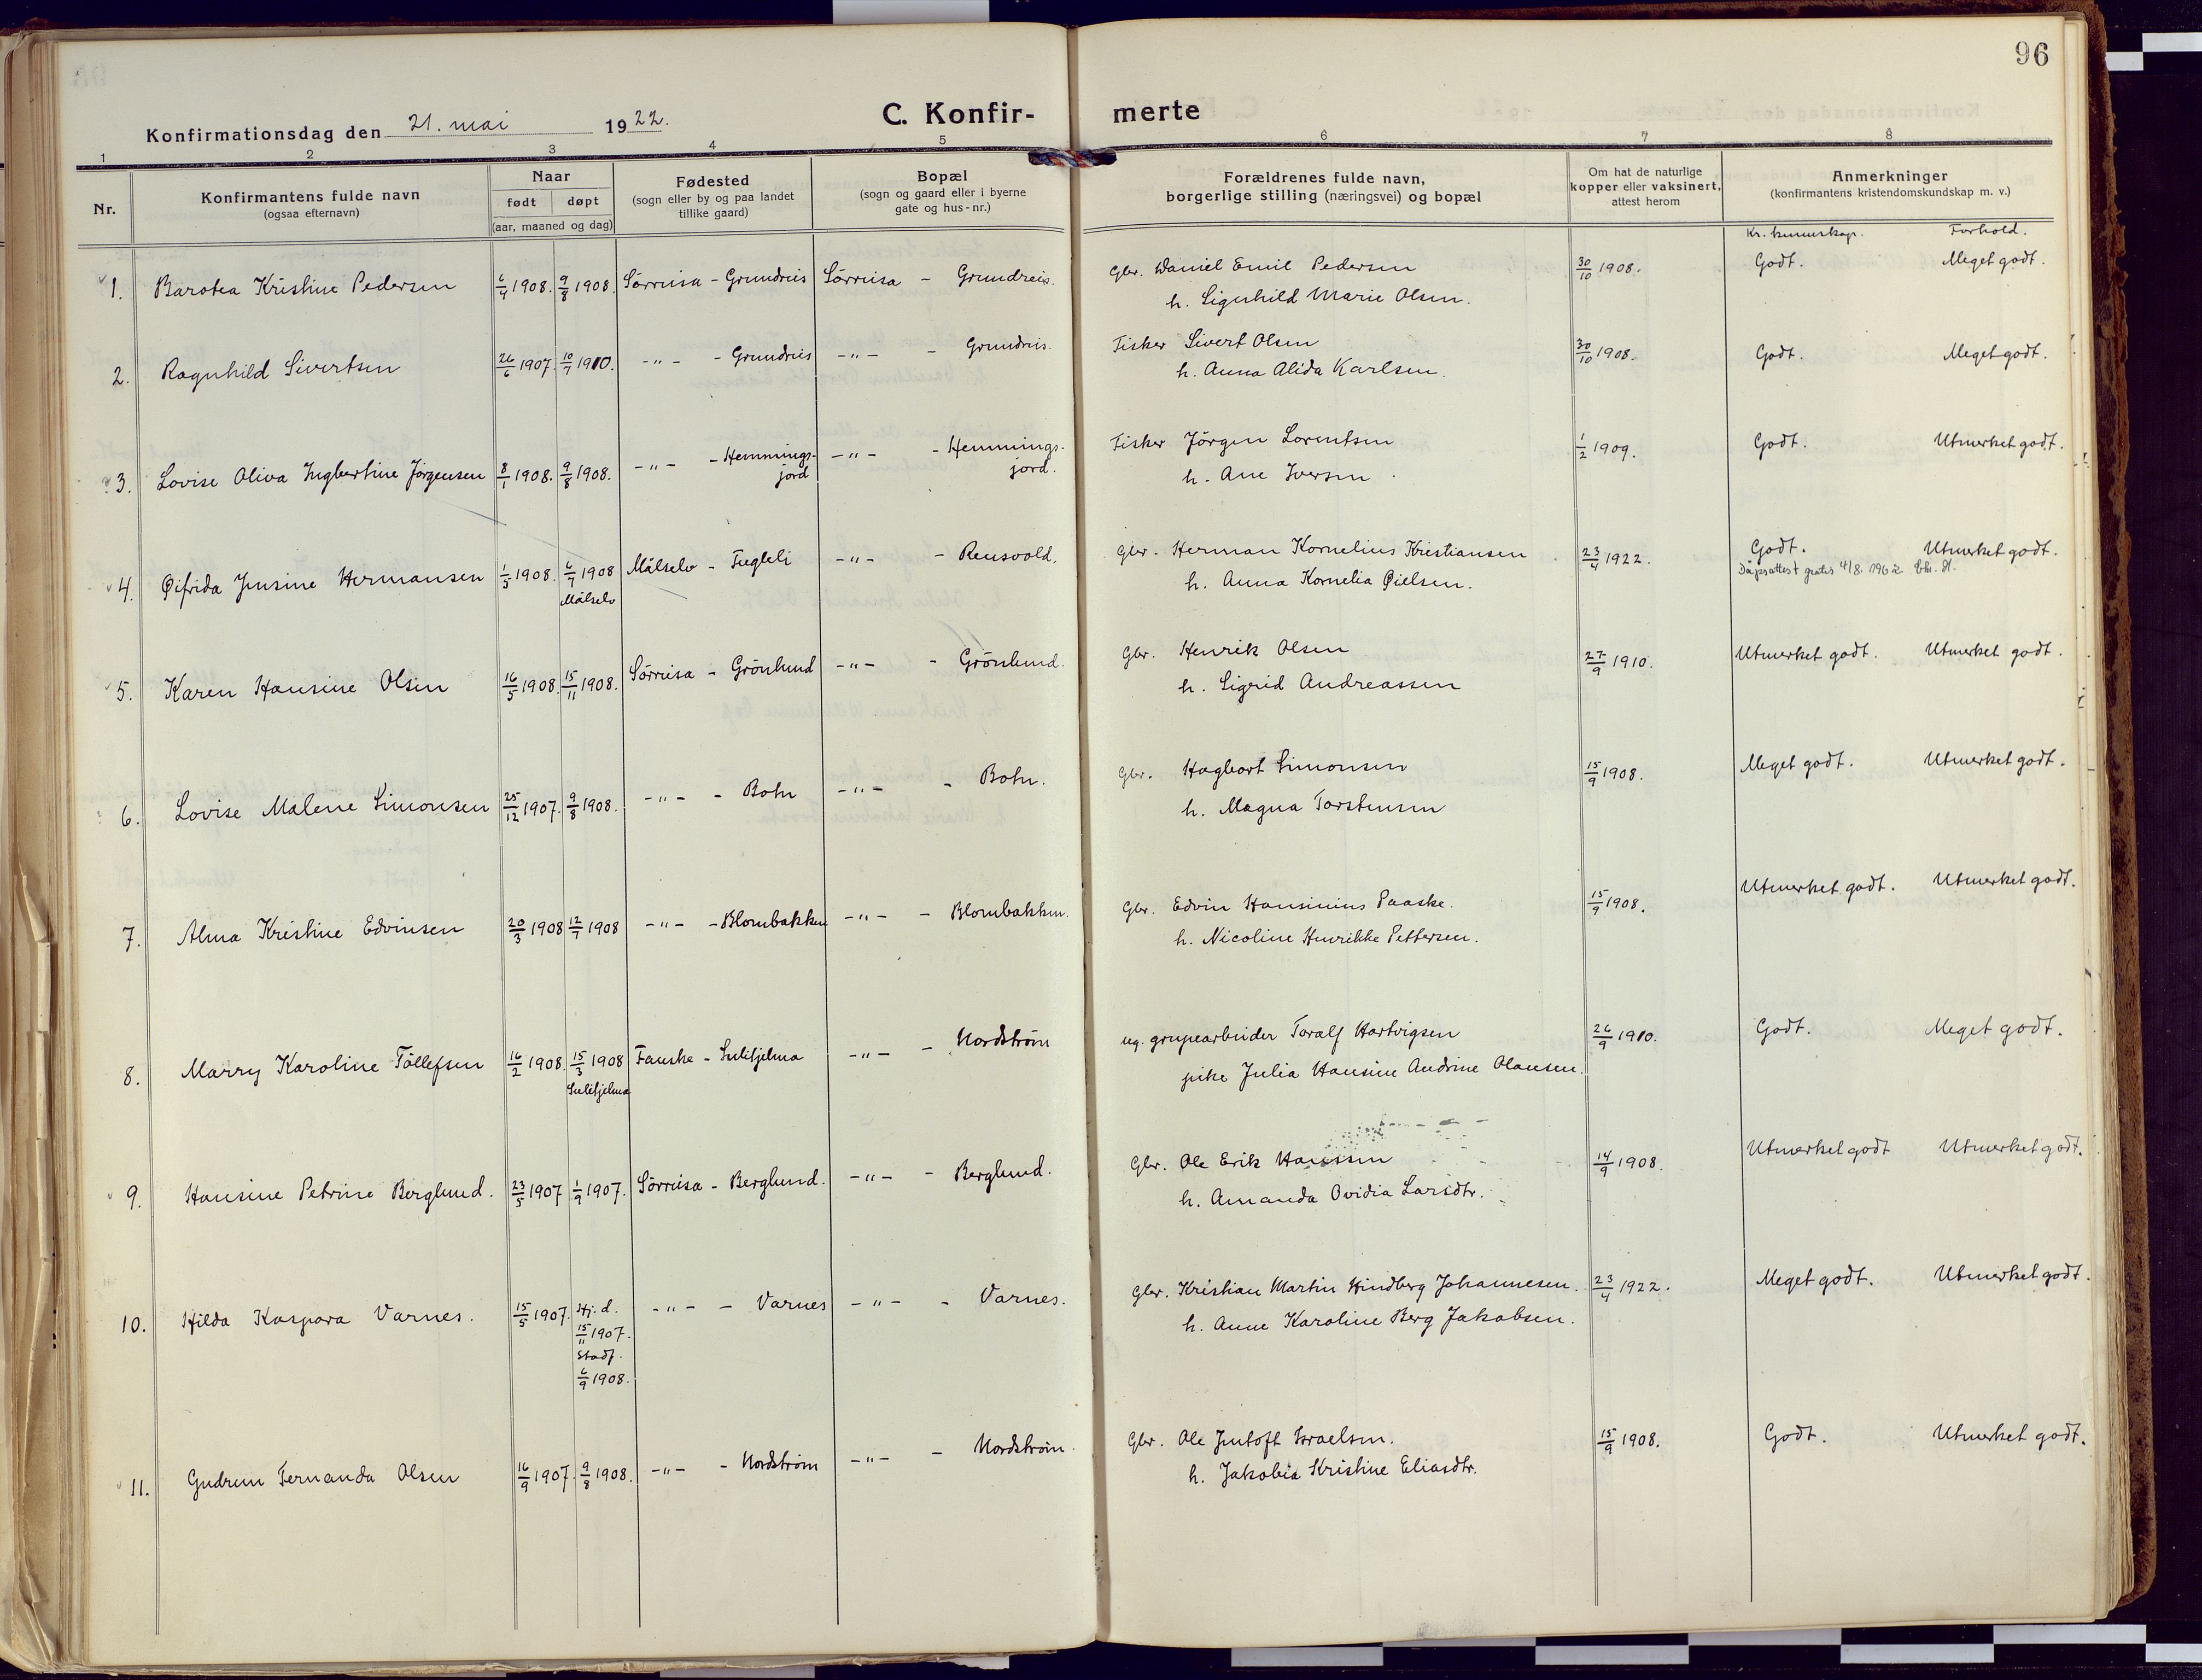 96
Konfirmationsdag den 21. mai 1922.
C. Konfirmerte
1 2 3 4 5 6 7 8
Nr.
Konfirmantens fulde navn
(ogsaa efternavn)
Naar
født døpt
(aar, maaned og dag)
Fødested
(sogn eller by og paa landet
tillike gaard)
Bopæl
(sogn og gaard eller i byerne
gate og hus-nr.)
Forældrenes fulde navn,
borgerlige stilling (næringsvei) og bopæl
Om hat de naturlige
kopper eller vaksinert,
attest herom
Anmerkninger
(konfirmantens kristendomskundskap m. v.)
Kr. kunnskap. Forhold.
1. Barotea Kristine Pedersen 6/4 1908. 9/8 1908. Sørreisa - Grundreis Sørreisa - Grundreis. Gbr. Daniel Emil Pedersen 30/10 1908. Godt. Meget godt.
h. Signhild Marie Olsen.
2. Ragnhild Sivertsen 26/6 1907. 10/7 1910. -"- - Grundreis -"- - Grundreis. Fisker Sivert Olsen 30/10 1908. Godt. Meget godt.
h. Anna Alida Karlsen.
3. Lovise Oliva Ingbertine Jørgensen 8/1 1908. 9/8 1908. -"- - Hemmings-
jord -"- - Hemmings-
jord. Fisker Jörgen Lorentsen 1/2 1909. Godt. Utmerket godt.
h. Ane Iversen
4. Øifrida Jensine Hermansen 1/3 1908. 6/7 1908 Målselv - Fugleli -"- - Reinsvold. Gbr. Herman Kornelius Kristiansen 23/4 1922. Godt. Utmerket godt.
Målselv
h. Anna Kornelia Öielsen. Dåpsattest gratis 4/8. 1962
5. Karen Hansine Olsen 16/5 1908. 15/11 1908. Sørreisa - Grönlund -"- - Grönlund. Gbr. Henrik Olsen 27/9 1910. Utmerket godt. Utmerket godt.
h. Sigrid Andreassen
6. Lovise Malene Simonsen 25/12 1907. 9/8 1908. -"- - Botn -"- - Botn. Gbr. Hagbart Simonsen 15/9 1908. Meget godt. Utmerket godt.
h. Magna Torstensen
7. Alma Kristine Edvinsen 20/3 1908 12/7 1908 -"- - Blombakken -"- - Blombakken. Gbr. Edvin Hansinius Paaske. 15/9 1908. Utmerket godt. Utmerket godt.
h. Nicoline Henrikke Pettersen.
8. Marry Karoline Töllefsen 16/2 1908. 15/3 1908 Fauske - Sulitjelma -"- - Nordström ug. grupearbeider Toralf Hartvigsen 26/9 1910. Godt. Meget godt.
Sulitjelma
pike Julia Hansine Andrine Olausen.
9. Hansine Petrine Berglund. 23/5 1907 1/9 1907. Sørreisa - Berglund. -"- - Berglund. Gbr. Ole Erik Hanssen 14/9 1908. Utmerket godt Utmerket godt.
h. Amanda Ovidia Larsdtr.
10. Hilda Kaspara Varnes. 15/5 1907. Hj. d.
15/11 1907.
Stadf.
6/9 1908. -"- - Varnes -"- - Varnes. Gbr. Kristian Martin Hindberg Johannesen. 23/4 1922. Meget godt. Utmerket godt.
h. Anne Karoline Berg Jakobsen.
11. Gudrun Fernanda Olsen 16/9 1907. 9/8 1908. -"- - Nordström -"- - Nordström. Gbr. Ole Jentoft Israelsen. 15/9 1908. Godt. Utmerket godt.
h. Jakobia Kristine Eliasdtr.